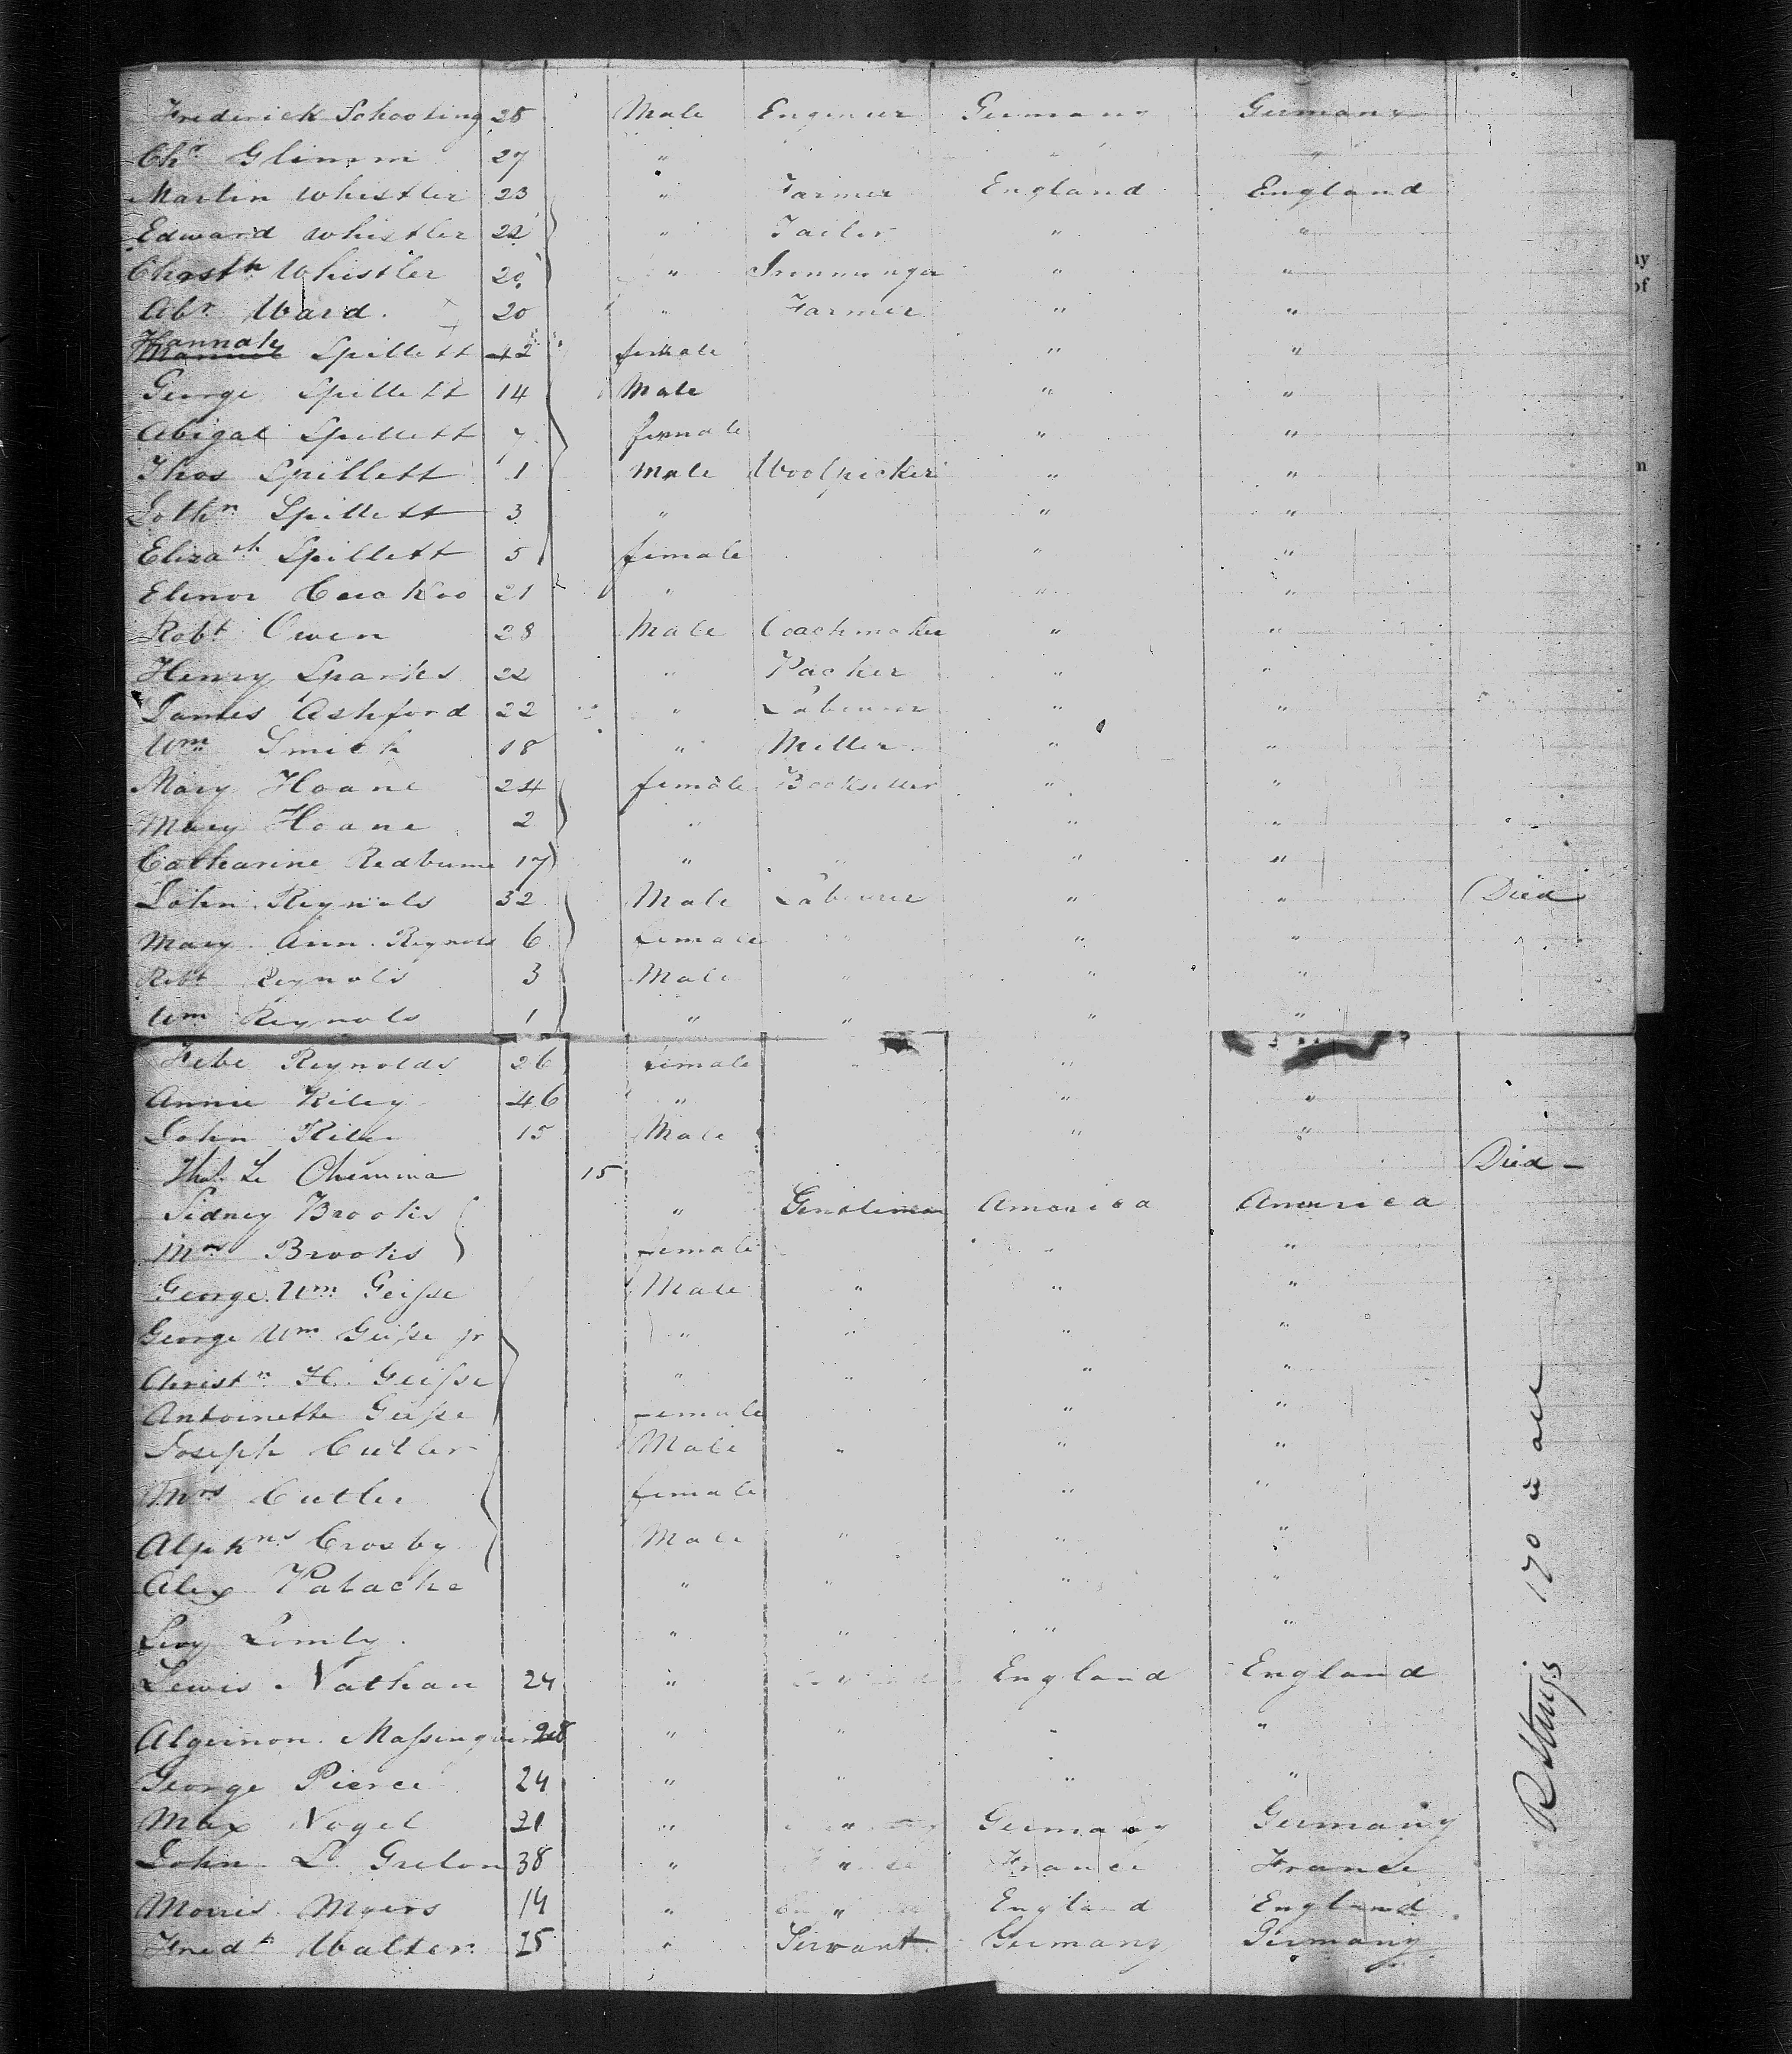 Frederick Schooting 28 Male Engineer Germany Germany
Chr Glimm 27 " " "
Martin Whistler 23 " Farmer England England
Edward Whistler 22 " Tailor " "
Christn Whistler 20 " Ironmonger " "
Abr Ward. 20 " Farmer " "
Hannah Spillett 42 female " "
George Spillett 14 Male " "
Abigal Spillett 7 female " "
Thos Spillett 1 Male Woolpicker " "
Spillett 3 " " "
Elizath Spillett 5 female " "
Elinor Cuckoo 21 " " "
Robt Owen 28 Male Coachmaker " "
Henry Sparks 22 " Packer " "
James Ashford 22 " Labourer " "
Wm Smith 18 " Miller " "
Mary Hoane 24 female Bookseller " "
Mary Hoane 2 " " "
Catharine Redburne 17 " " " "
John Reynols 32 Male Labourer " " Died
Mary Ann Reynols 6 female " " "
Robt Reynols 3 Male " " "
Wm Reynols 1 " " " "
Febe Reynolds 26 female " " "
Annie Kiley 46 " " "
John Kiley 15 Male " "
Le Chemina 15 Died -
Sidney Brooks " Gentleman America America
Mrs Brooks female " "
George Wm Geisse Male " " "
George Wm Geisse jr " " " "
Christn H. Geisse " " " "
Antoinette Geisse female " "
Joseph Cutler Male " " "
Mrs Cutler female " "
Alphns Crosby Male " " "
Alex Patache " " " "
Levy Lomly " " " "
Lewis Nathan 24 " " England England
Algernon 28 " " " "
George Pierce 24 " " " "
Max Vogel 21 " " Germany Germany
John L. Grelon 38 " " France France
Morris Myers 14 " " England England
Fredk Walter 25 " Servant Germany Germany
170 in all